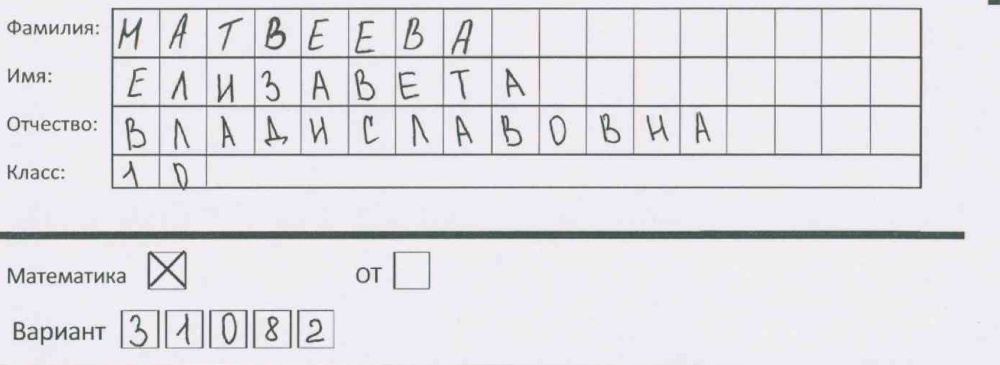 Фамилия: МАТВЕЕВА
Имя: ЕЛИЗАВЕТА
Отчество: ВЛАДИСЛАВОВНА
Класс: 10
Математика ☒ от ☐
Вариант 31082